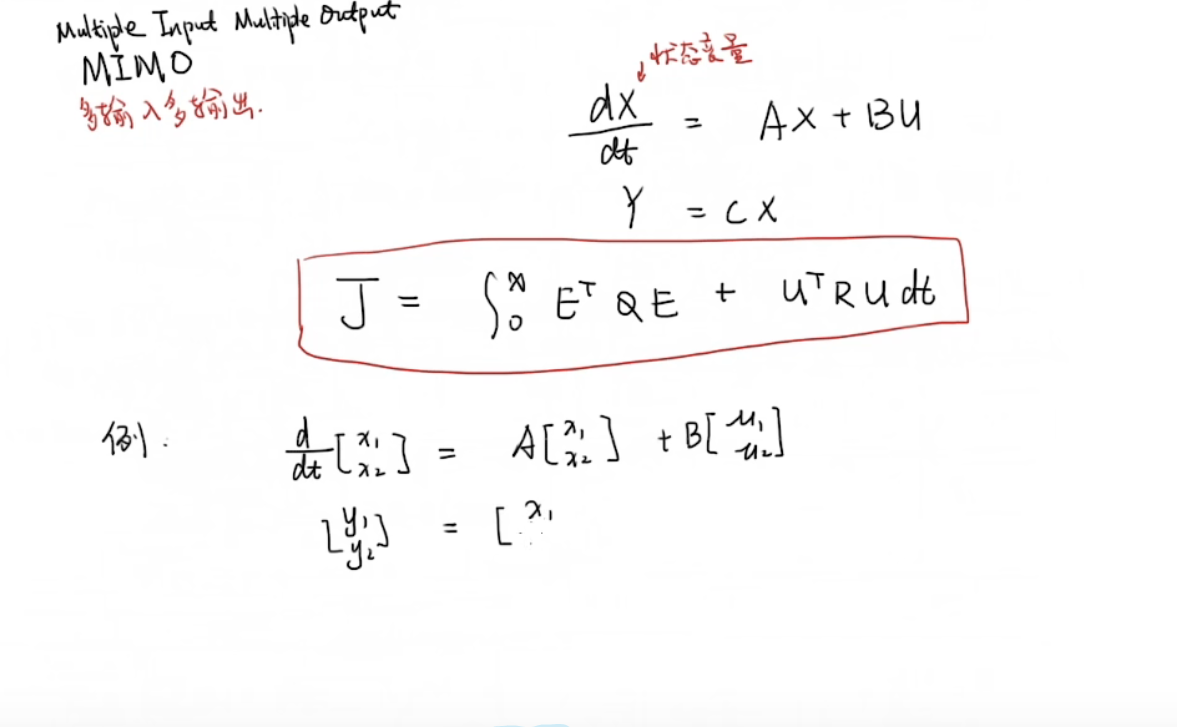 Multiple Input Multiple Output
MIMO
多输入多输出.
状态变量
dX/dt = AX + BU
Y = CX
J = ∫₀^∞ Eᵀ Q E + Uᵀ R U dt
例:
d/dt [x₁ x₂] = A[x₁ x₂] + B[u₁ u₂]
[y₁ y₂] = [x₁